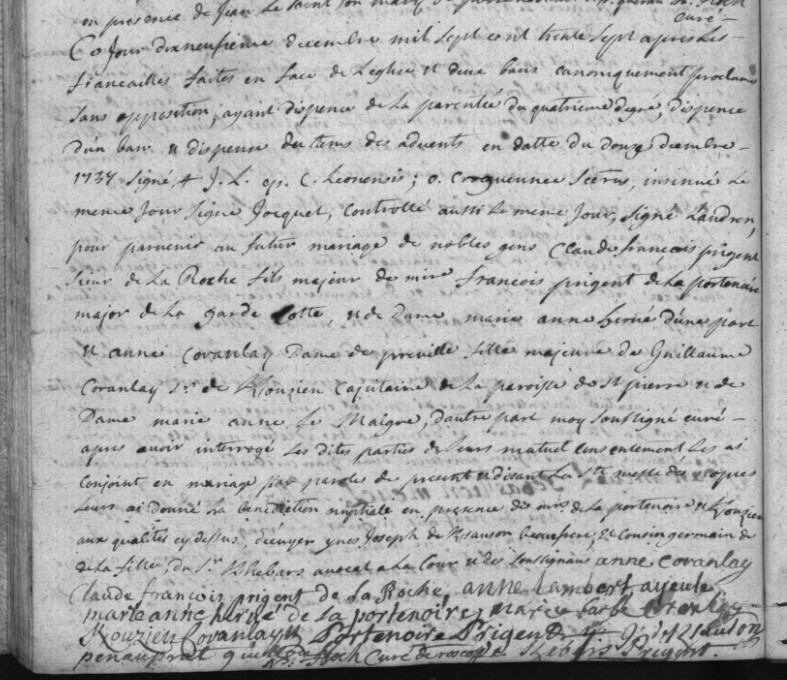 en presence de Jean le saint son mary
curé –
Ce Jour dixneufvieme decembre mil sept cent trente sept apres les –
fiancailles faites en face de Leglise et deux bans canoniquement proclamé
sans opposition, ayant dispence de La parentée du quatrieme degré, dispence
d'un ban et dispense du tems des advents en datte du douze decembre –
1737 signé, + J. L. ep. C. Leonensis; o. Croguennec Secrus, insinué Le
meme Jour signe Jocquet, controllé aussi Le meme Jour, signé Landren,
pour parvenir au futur mariage de nobles gens Claude françois prigent
sieur de La Roche fils majeur de mire francois prigent de La portenoire
major de La garde Cotte, et de Dame marie anne hervé d'une part
et anne Coranlay Dame de preville fille majeure de Guillaume
Coranlay Sr. de Kouzien Capitaine de La paroisse de st pierre et de
Dame marie anne Le Maigre, d'autre part moy soussigné curé –
apres avoir interrogé Les dites parties de Leurs mutuel consentement Les ai
conjoint en mariage par paroles de present et disant La Ste messe des
Leurs ai donné La benediction nuptiale en presence de mrs de La portenoire et Kouzien
aux qualités cy dessus, d'ecuyer yves Joseph de Ksauson beaufrere, et Cousin germain de
de La fille, du Sr. Khebars avocat a La Cour et des soussignans anne Coranlay
Claude francois prigent de La Roche, anne Lambert, ayeule
marie anne hervé de La portenoire, marie barbe Coranlay
Kouzien Coranlay Portenoire Prigent
penanprat Roch Curé de roscoff Khebars Prigent